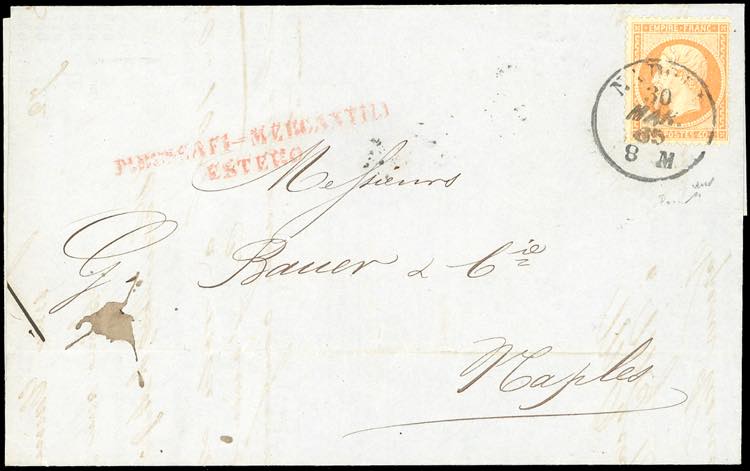 EMPIRE FRANC
POSTES 40
NAPOLI
30
MAR.
65
8 M
PIROSCAFI-MERCANTILI
ESTERO
Messieurs
G Bauer & Cie
Naples